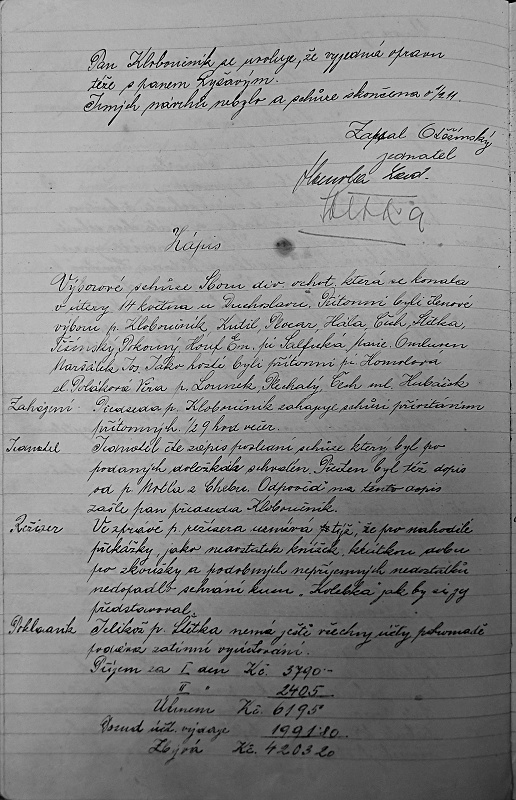 Pan Kloboučník se uvoluje, že vyjedná opravu
téže s panem Ryšavým.
Jiných návrhů nebylo a schůze skončena o ½ 11.
Zapsal
jednatel
Zápis
Výborové schůze Sboru div. ochot. která se konala
v úterý 14 května u Duchoslavů. Přítomni byli členové
výboru p. Kloboučník, Kutil, Hála, Čech, Slétka,
Pokorný, Houf En. pí Omluven
Maršálek Jos. Jako hosté byli přítomni pí Homolová
sl. Poláková Věra p. Lounek, Plechatý, Čech ml. Hubáček
Zahájení Předseda p. Kloboučník zahajuje schůzi přivítáním
přítomných ½ 9 hod večer.
Jednatel Jednatel čte zápis poslední schůze který byl po
podaných doložkách schválen. Přečten byl též dopis
od p. Molla z Chebu. Odpověď na tento dopis
zašle pan předseda Kloboučník.
Režiser Ve zprávě p. režisera že pro nahodilé
překážky, jako nedostatek knížek, krátkou dobu
po zkoušky a podobných nepříjemných nedostatků
nedopadlo sehrání kusu „Kolébka jak by si jej
představoval.
Pokladník Jelikož p. Slétka nemá ještě všechny účty pohromadě
podává zatímní vyúčtování.
Příjem za I. den Kč. 3790.-
II " 2405.
Úhrnem Kč. 6195
Dosud účt. výdaje 1991.80
Zbývá Kč. 4203.20